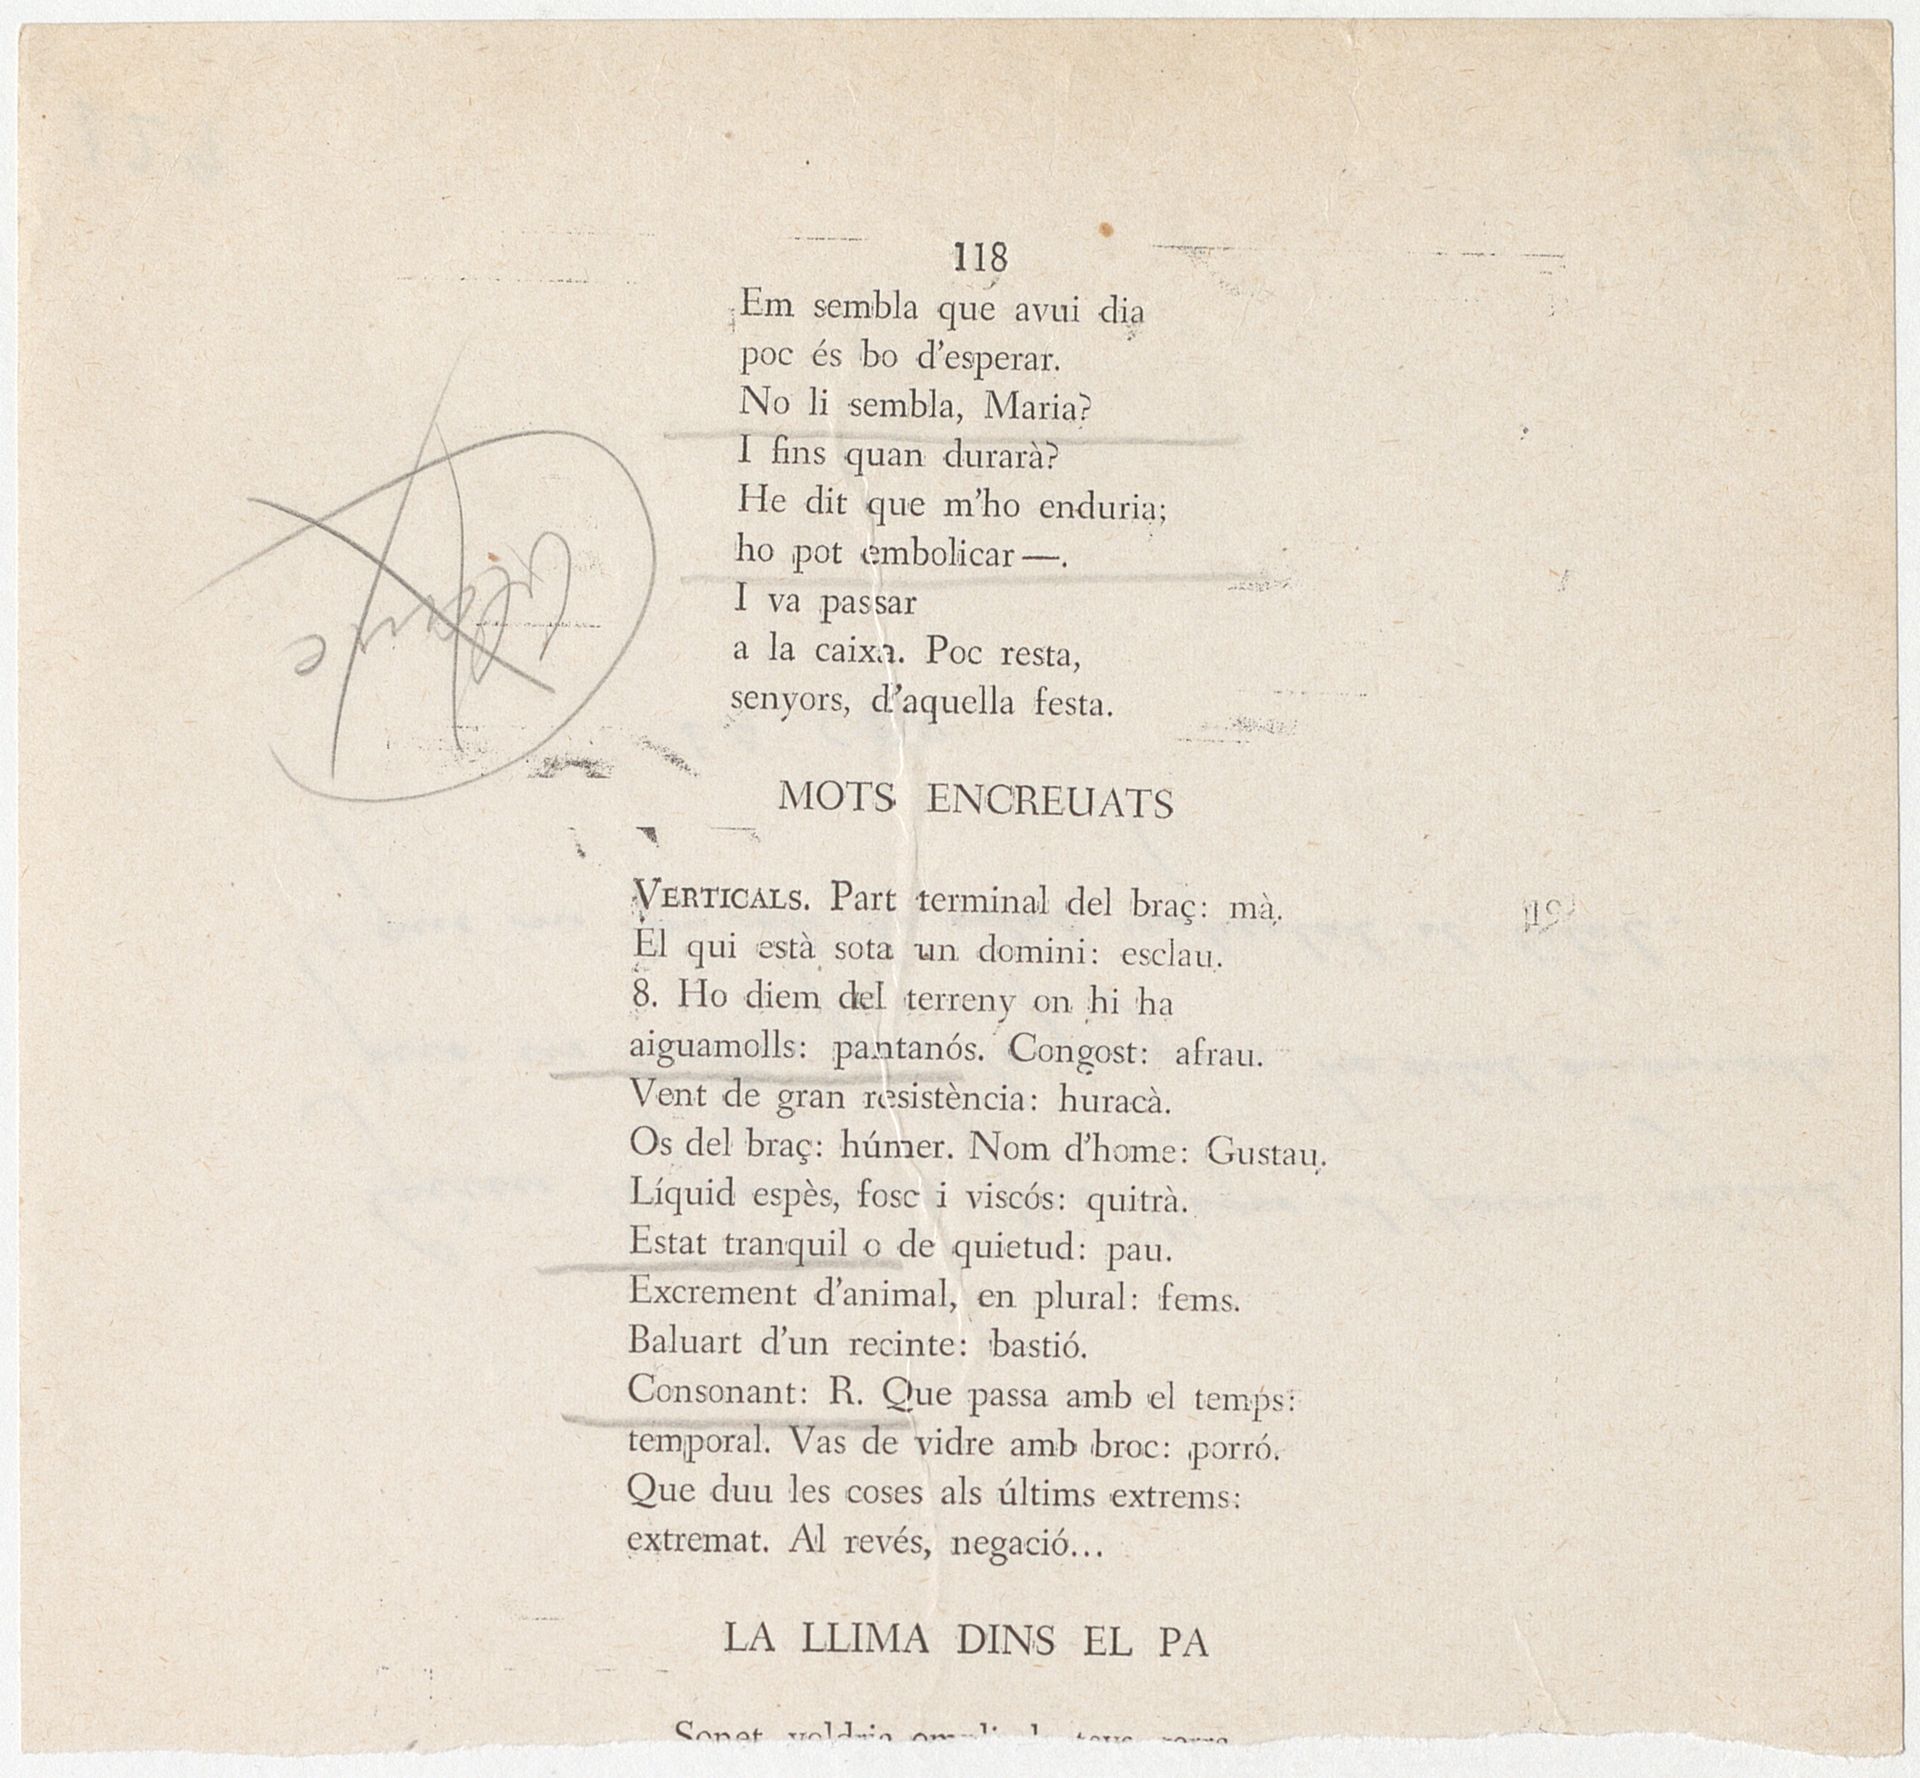 118
Em sembla que avui dia
poc és bo d'esperar.
No li sembla, Maria?
I fins quan durarà?
He dit que m'ho enduria;
ho pot embolicar—.
I va passar
a la caixa. Poc resta,
senyors, d'aquella festa.
MOTS ENCREUATS
VERTICALS. Part terminal del braç: mà.
El qui està sota un domini: esclau.
8. Ho diem del terreny on hi ha
aiguamolls: pantanós. Congost: afrau.
Vent de gran resistència: huracà.
Os del braç: húmer. Nom d'home: Gustau.
Líquid espès, fosc i viscós: quitrà.
Estat tranquil o de quietud: pau.
Excrement d'animal, en plural: fems.
Baluart d'un recinte: bastió.
Consonant: R. Que passa amb el temps:
temporal. Vas de vidre amb broc: porró.
Que duu les coses als últims extrems:
extremat. Al revés, negació...
LA LLIMA DINS EL PA
Sonet, voldria